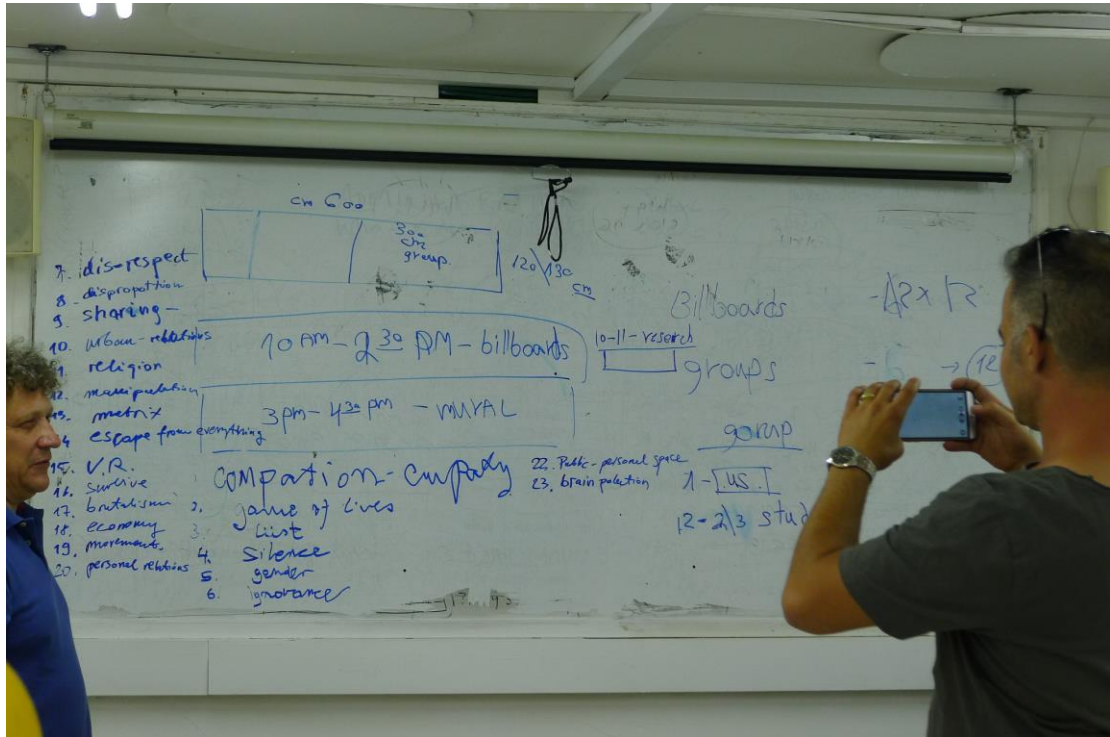 cm 600
300
cm
group
120\130
cm
7. disrespect
8. disproportion
9. sharing -
10. urban-relations
11. religion
12. manipulation
13. metrix
14 escape from everything
15. V.R.
16. survive
17. brutalism
18. economy
19. movements
20. personal relations
10 AM - 2 30 PM - billboards
3 pm - 4 30 pm - MURAL
COMPATION -
2. game of lives
3.
4. Silence
5. gender
6. ignorance
22. Public - personal space
23. brain
10-11- reserch
Billboards
groups
- 12 x 12
→ 12
gorup
1 - U.S.
2 - 2\3 stud